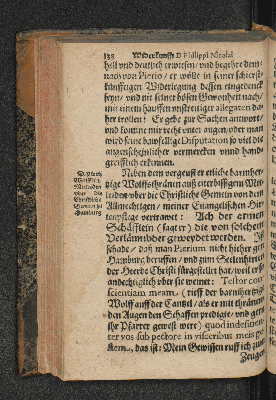 128 Widerkunfft D. Philippi Nicolai
hell und deutlich erwiesen/ und begehre dem-
nach von Pierio/ er wolle in seiner schierst-
künfftigen Widerlegung dessen eingedenck
seyn/ und nit seiner bösen Gewonheit nach/
mit einem hauffen unstreitiger allegaten da-
her trollen: Er gebe zur Sachen antwort/
und komme mir recht unter augen/ oder man
wird seine bawfellige Disputation so viel die
augenscheinlicher vermercken unnd hand-
greifflich erkennen.
Neben dem vergeust er etliche barmher-
tzige Wolffsthränen auß eiterbissigem Mit-
leiden über die Christliche Gemein von dem
Allmechtigen/ meiner Evangelischen Hir-
tenpflege vertrawet: Ach der ermen
Schäfflein (sagt er) die von solchem
Verlämbder geweydet werden. Ist
schade/ daß man Pierium nicht hieher gen
Hamburg beruffen/ und zum Seelenhirten
der Heerde Christi fürgestellet hat/ weil er so
andechtiglich über sie weinet: Testor con-
scientiam meam, (rieff der barmhertzige
Wolff auff der Cantzel/ als er mit thränen-
den Augen den Schaffen predigte/ und gern
ihr Pfarrer gewest wer) quod indesinen-
ter vos sub pectore in visceribus meis ge-
stem, das ist: Mein Gewissen ruff ich zum
Zeugen
Pierii
Wölffisch
Mitleiden
über die
Christliche
Gemein zu
Hamburg